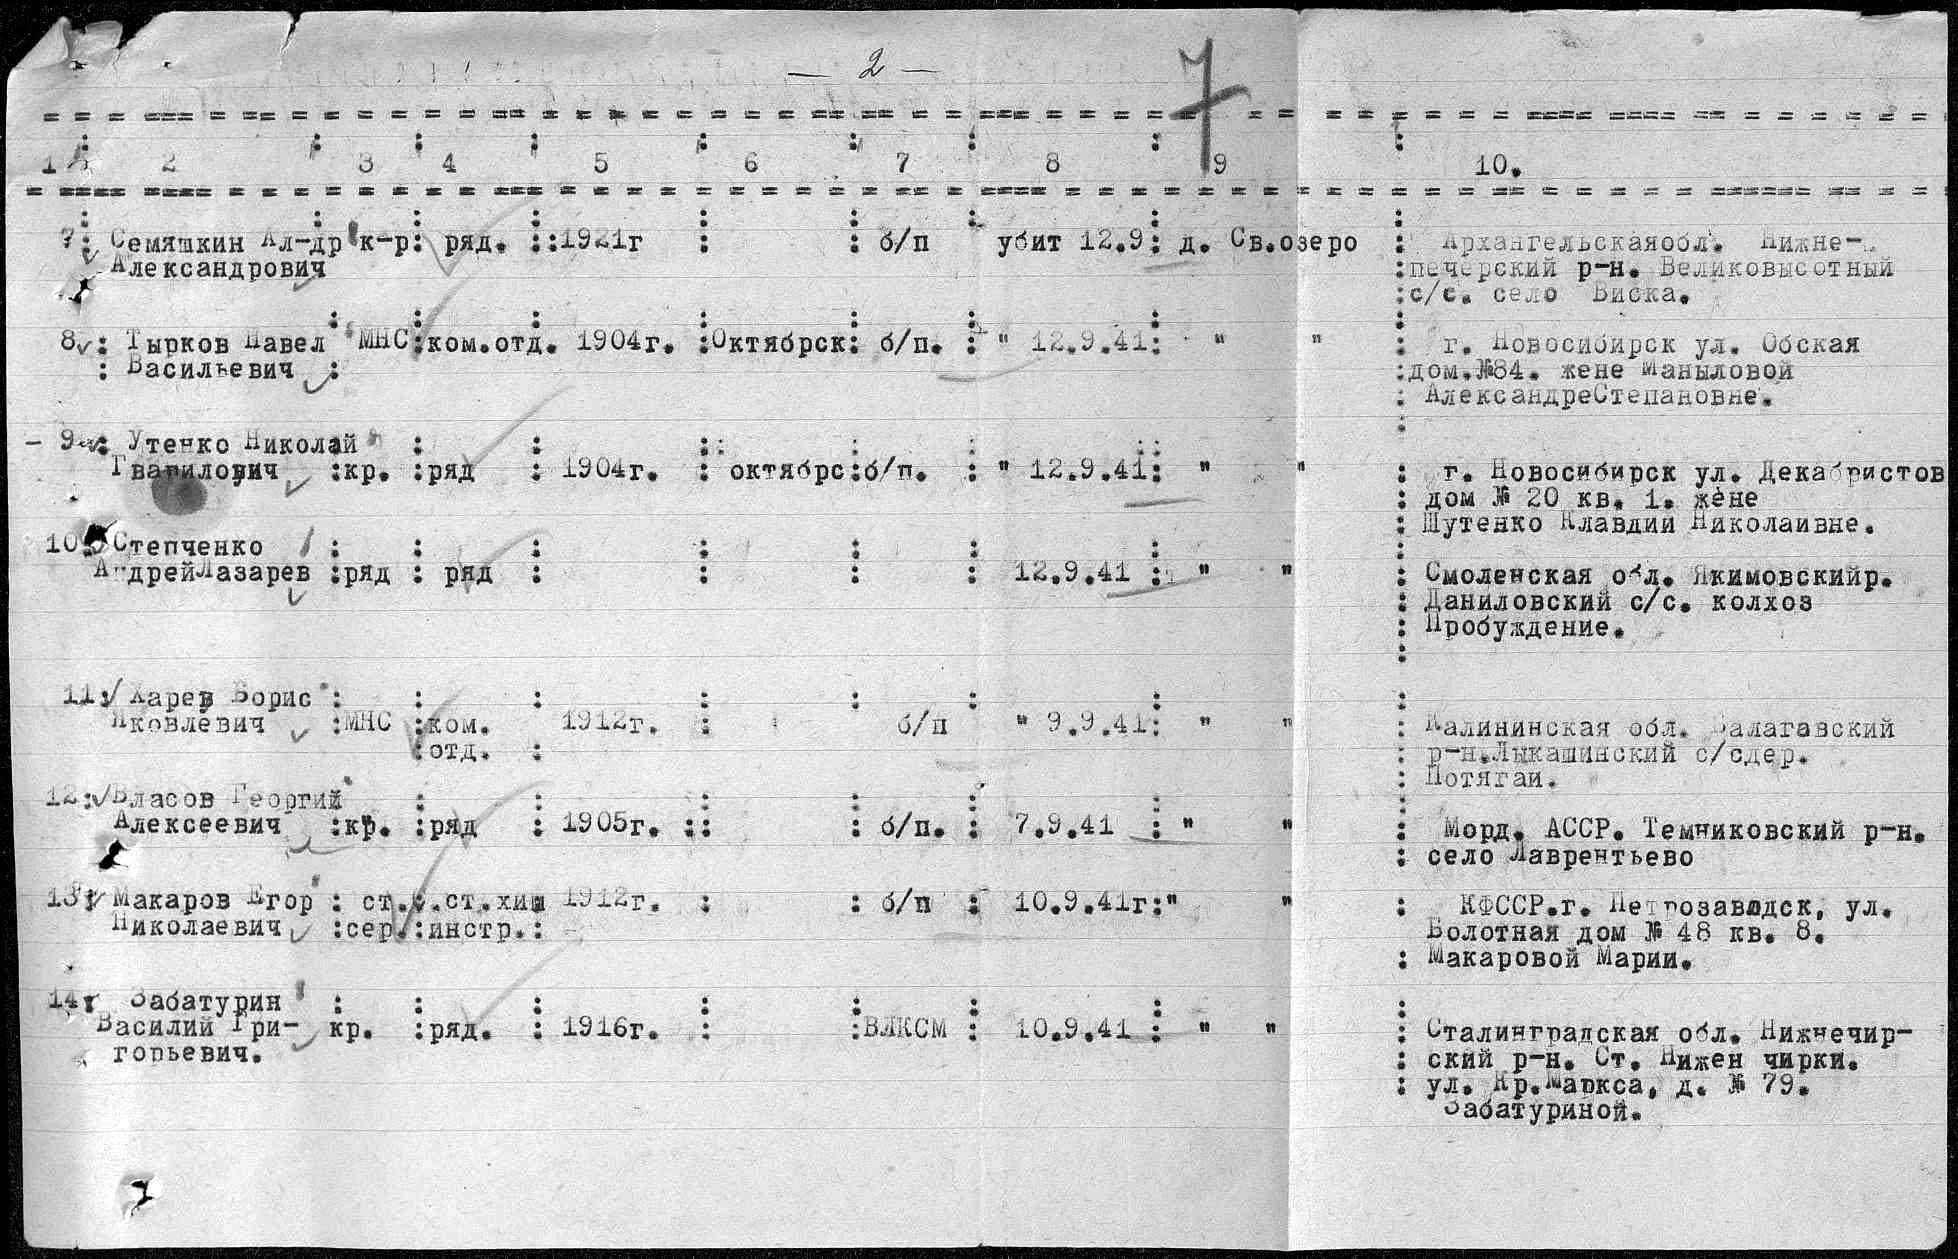 — 2 —
7
1 2 3 4 5 6 7 8 9 10.
7 Семяшкин Ал-др к-р ряд. 1921г б/п убит 12.9 д. Св.озеро Архангельскаяобл. Нижне-
Александрович печерский р-н. Великовысотный
с/с. село Виска.
8 Тырков Павел МНС ком.отд. 1904г. Октябрск б/п. " 12.9.41 " " г. Новосибирск ул. Обская
Васильевич дом.№84. жене Маныловой
АлександреСтепановне.
- 9 Утенко Николай
Гвапилович кр. ряд 1904г. октябрс б/п. " 12.9.41 " " г. Новосибирск ул. Декабристов
дом № 20 кв. 1. жене
Шутенко Клавдии Николаивне.
10 Степченко
АндрейЛазарев ряд ряд 12.9.41 " " Смоленская обл. Якимовскийр.
Даниловский с/с. колхоз
Пробуждение.
11 Харев Борис
Яковлевич МНС ком. 1912г. б/п " 9.9.41 " " Калининская обл. Валагавский
отд. р-н.Лыкашинский с/сдер.
Потягаи.
12 Власов Георгий
Алексеевич кр. ряд 1905г. б/п. 7.9.41 " " Морд. АССР. Темниковский р-н.
село Лаврентьево
13 Макаров Егор ст. ст.хим 1912г. б/п 10.9.41г " " КФССР.г. Петрозаводск, ул.
Николаевич сер. инстр. Болотная дом № 48 кв. 8.
Макаровой Марии.
14 Забатурин
Василий Гри- кр. ряд. 1916г. ВЛКСМ 10.9.41 " " Сталинградская обл. Нижнечир-
горьевич. ский р-н. Ст. Нижен чирки.
ул. Кр.Маркса, д. № 79.
Забатуриной.